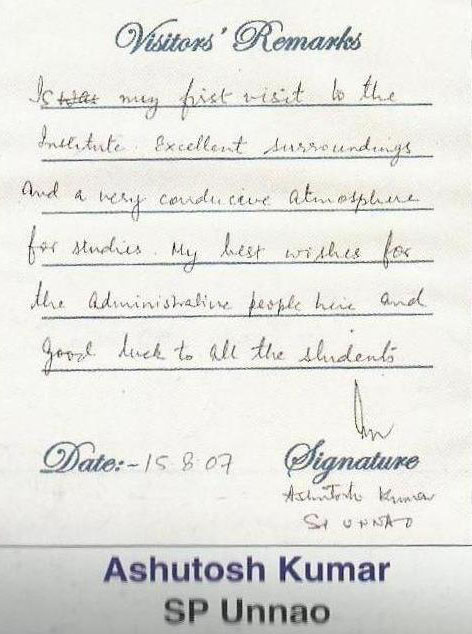 Visitors' Remarks
Is was my first visit to the
Institute. Excellent surroundings
and a very conducive atmosphere
for studies. My best wishes for
the administrative people here and
good luck to all the students
Date:- 15.8.07
Signature
Ashutosh Kumar
SP UNNAO
Ashutosh Kumar
SP Unnao